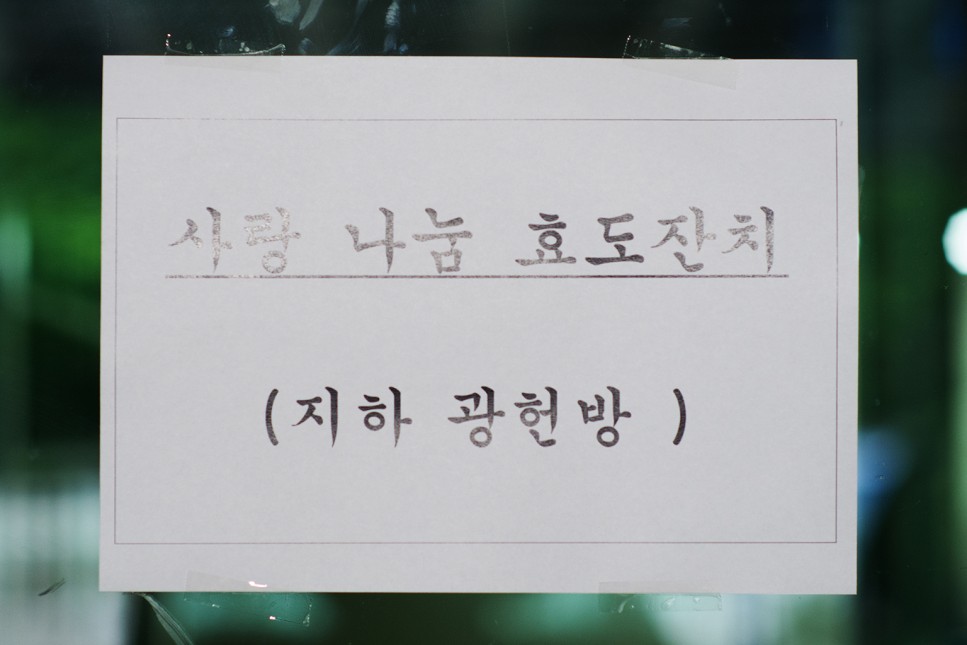 사랑 나눔 효도잔치
(지하 광헌방 )